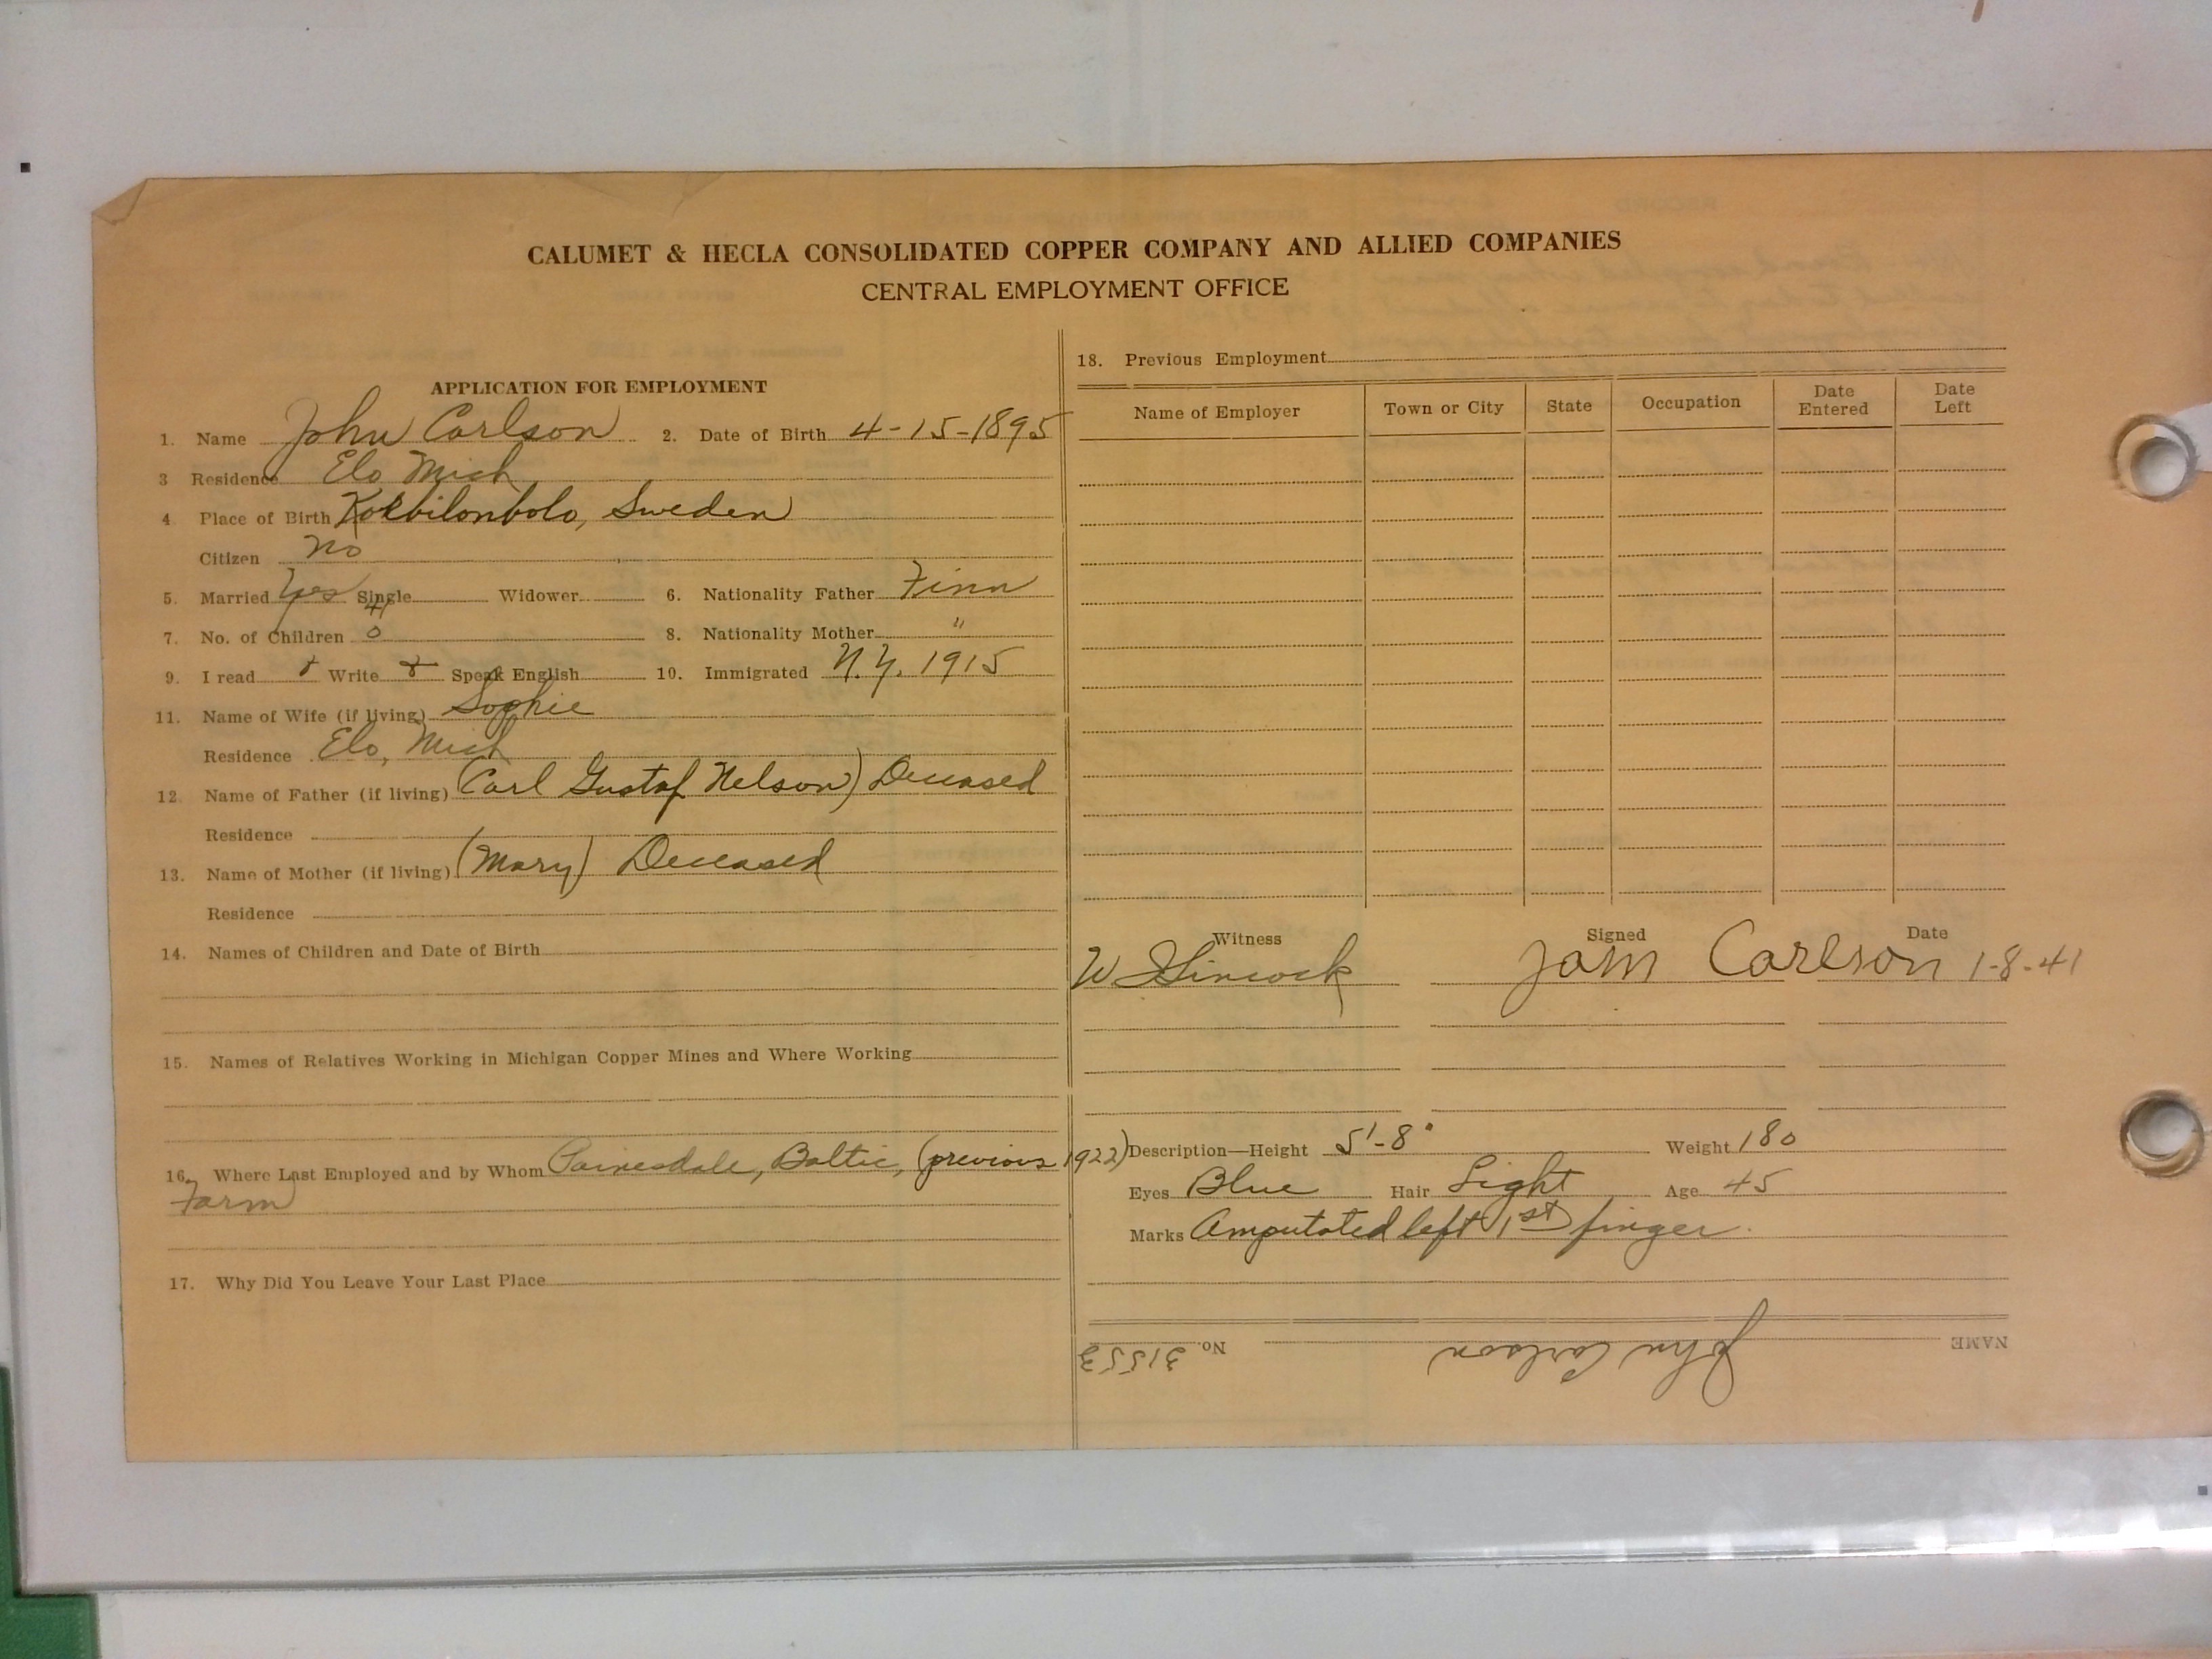 CALUMET & HECLA CONSOLIDATED COPPER COMPANY AND ALLIED COMPANIES
CENTRAL EMPLOYMENT OFFICE
APPLICATION FOR EMPLOYMENT
1. Name John Carlson 2. Date of Birth 4-15-1895
3 Residence Elo Mich
4 Place of Birth Sweden
Citizen No
5. Married Yes Single Widower 6. Nationality Father Finn
7. No. of Children 8. Nationality Mother "
9. I read Write Speak English 10. Immigrated N.Y. 1915
11. Name of Wife (if living) Sophie
Residence Elo, Mich
12. Name of Father (if living) (Carl Gustaf Nelson) Deceased
Residence
13. Name of Mother (if living) (Mary) Deceased
Residence
14. Names of Children and Date of Birth
15. Names of Relatives Working in Michigan Copper Mines and Where Working
16. Where Last Employed and by Whom Painesdale, Baltic, (previous 1922)
Farm
17. Why Did You Leave Your Last Place
18. Previous Employment
Name of Employer Town or City State Occupation Date Entered Date Left
Witness Signed Date
W Carlson 1-8-41
Description—Height 5'-8" Weight 180
Eyes Blue Hair Light Age 45
Marks Amputated left 1st finger.
NAME John Carlson No. 31553